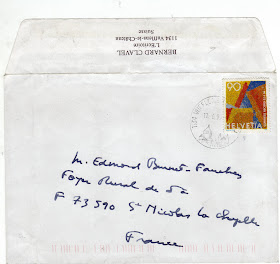 BERNARD CLAVEL
L'Ermitage
1134 Vufflens-le-Château
Suisse
90
HELVETIA
M. Edmond Brunet-Fauches
Foyer Rural de
F 73590 St Nicolas la Chapelle
France